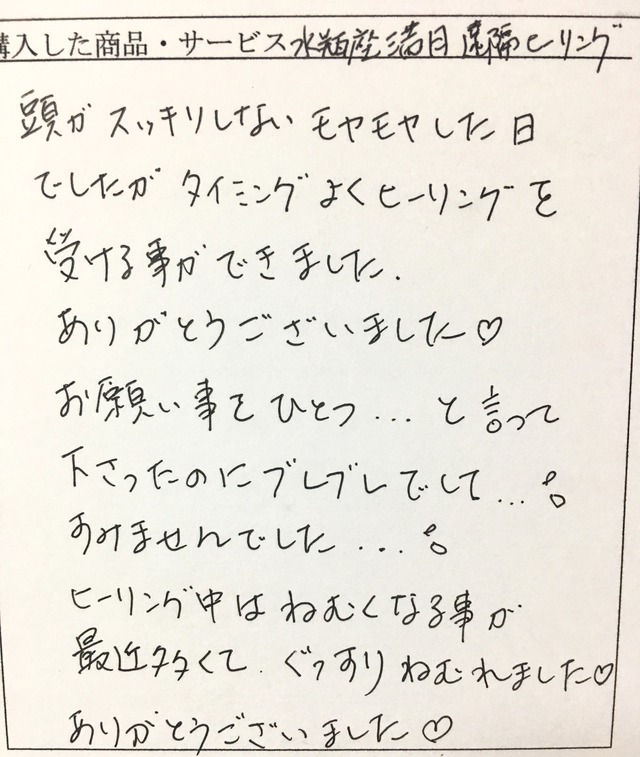 購入した商品・サービス水瓶座満月遠隔ヒーリング
頭がスッキリしないモヤモヤした日
でしたがタイミングよくヒーリングを
受ける事ができました.
ありがとうございました♡
お願い事をひとつ...と言って
下さったのにブレブレでして...
すみませんでした...
ヒーリング中はねむくなる事が
最近多くて.ぐっすりねむれました♡
ありがとうございました♡